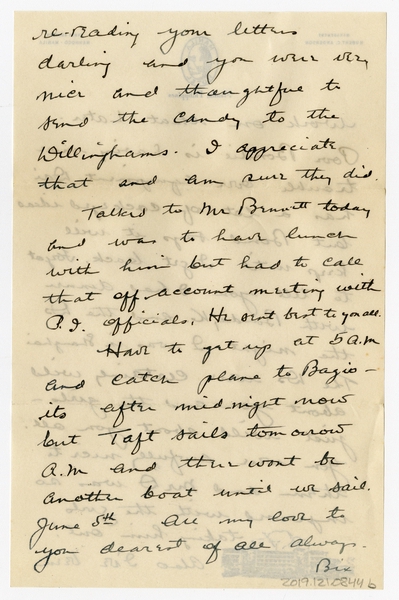 re-reading your letters
darling and you were very
nice and thoughtful to
send the candy to the
Willinghams. I appreciate
that and am sure they did.
Talked to Mr Bennett today
and was to have lunch
with him but has to call
that off account meeting with
P.I. officials. He sent best to you all.
Have to get up at 5 A.M
and catch plane to Bagio -
its after mid-night now
but Taft sails tomorrow
A.M and there wont be
another boat until we sail.
June 5th All my love to
you dearest of all always.
Bix
2019.12.0844b